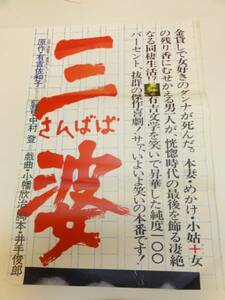 金貸しで女好きのダンナが死んだ。本妻・めかけ・小姑＋女
の残り香にむせかえる男一人が、恍惚時代の最後を飾る凄絶
なる同棲生活！有吉文学を笑いで昇華した純度一〇〇
パーセント、抜群の傑作喜劇！サァ、いよいよ笑いの本番です！
三婆
さんばば
原作・有吉佐和子
監督・中村 登
戯曲・小幡欣治
脚本・井手俊郎